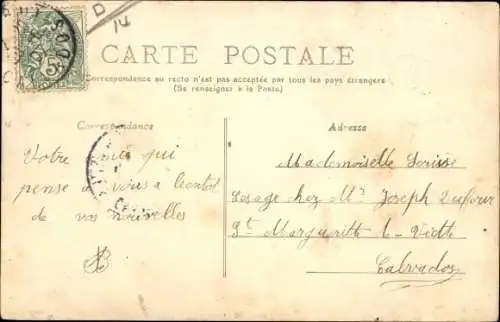 D
14
CARTE POSTALE
Correspondance au recto n'est pas acceptée par tous les pays étrangers
(Se renseigner à la Poste.)
Correspondance
Votre ami qui
pense à vous a bientot
de vos nouvelles
Adresse
Mademoiselle Louise
Lesage chez Mr Joseph Dufour
Ste Margueritte de Viette
Calvados